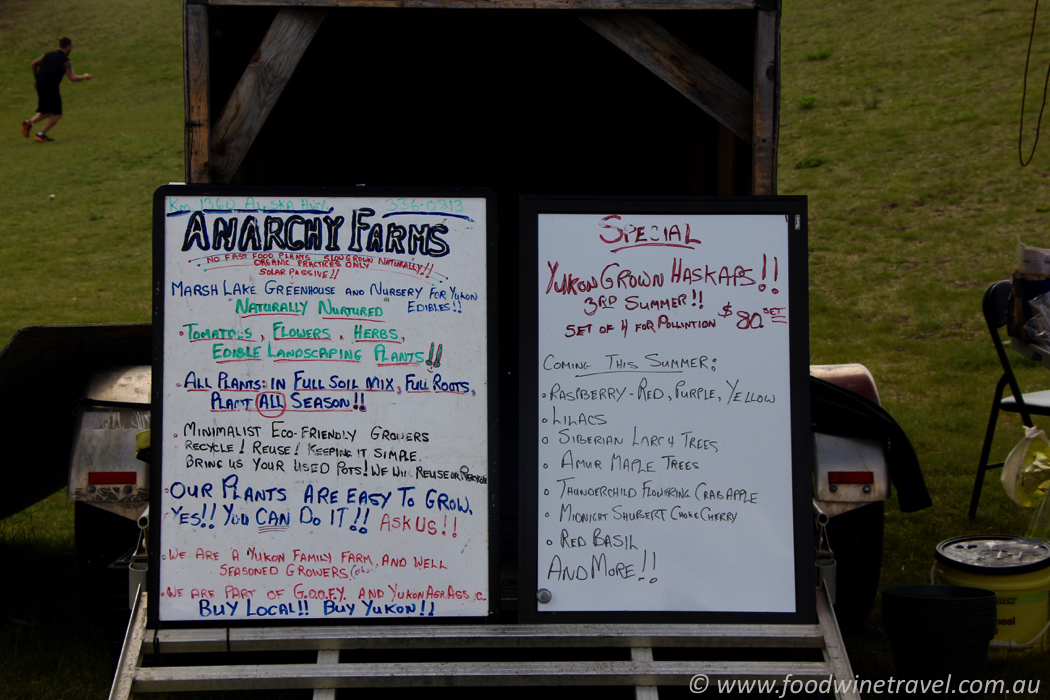 Km 1360 ALASKA HWY 336-0313
ANARCHY FARMS
NO FAST FOOD PLANTS SLOW GROWN NATURALLY!!
ORGANIC PRACTICES ONLY
SOLAR PASSIVE!!
MARSH LAKE GREENHOUSE AND NURSERY FOR YUKON
EDIBLES!!
NATURALLY NURTURED
• TOMATOES, FLOWERS, HERBS,
EDIBLE LANDSCAPING PLANTS!!
• ALL PLANTS: IN FULL SOIL MIX, FULL ROOTS,
PLANT ALL SEASON!!
• MINIMALIST ECO-FRIENDLY GROWERS
RECYCLE! REUSE! KEEPING IT SIMPLE.
BRING US YOUR USED POTS! WE WILL REUSE OR RECYCLE
• OUR PLANTS ARE EASY TO GROW.
YES!! YOU CAN DO IT!! ASK US!!
• WE ARE A YUKON FAMILY FARM, AND WELL
SEASONED GROWERS
• WE ARE PART OF G.O.O.F.Y. AND YUKON AGR ASS
BUY LOCAL!! BUY YUKON!!
SPECIAL
YUKON GROWN HASKAPS!!
3RD SUMMER!!
SET OF 4 FOR POLLINTION $80. SET
COMING THIS SUMMER:
• RASPBERRY - RED, PURPLE, YELLOW
• LILACS
• SIBERIAN LARCH TREES
• AMUR MAPLE TREES
• THUNDERCHILD FLOWERING CRABAPPLE
• MIDNIGHT SHUBERT CHOKECHERRY
• RED BASIL
AND MORE!!
© www.foodwinetravel.com.au